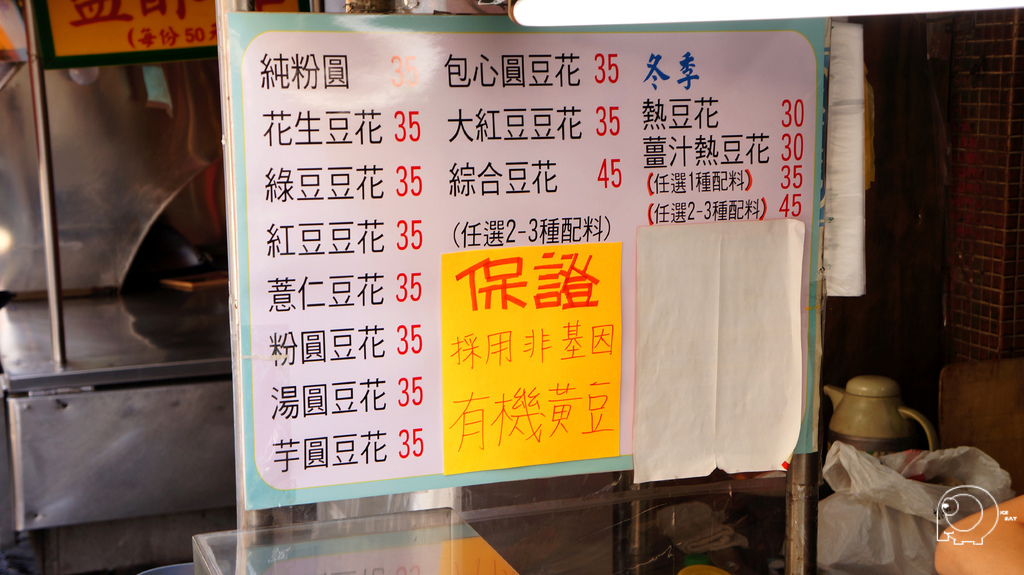 (每份50元
純粉圓 35
花生豆花 35
綠豆豆花 35
紅豆豆花 35
薏仁豆花 35
粉圓豆花 35
湯圓豆花 35
芋圓豆花 35
包心圓豆花 35
大紅豆豆花 35
綜合豆花 45
(任選2-3種配料)
保證
採用非基因
有機黃豆
冬季
熱豆花 30
薑汁熱豆花 30
(任選1種配料) 35
(任選2-3種配料) 45